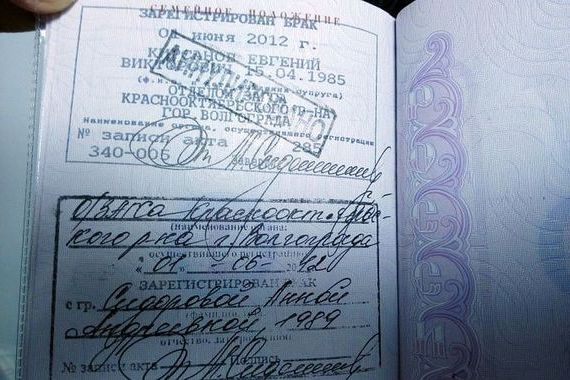 СЕМЕЙНОЕ ПОЛОЖЕНИЕ
ЗАРЕГИСТРИРОВАН БРАК
ИЮНЯ 2012 г.
ЕВГЕНИЙ
15.04.1985
супруга)
КРАСНООКТЯБРЬСКОГО Р-НА
ГОР. ВОЛГОГРАДА
Наименование органа, осуществившего регистрацию
№ записи акта 285
340-006
О/ЗАГСа Краснооктябрьс-
кого р-на г. Волгограда
(наименование органа,
осуществившего регистрацию)
"01" 06 2012
ЗАРЕГИСТРИРОВАН БРАК
с гр. Сидоровой Анной
Андреевной, 1989
отчество, дата рождения)
№ записи акта Подпись